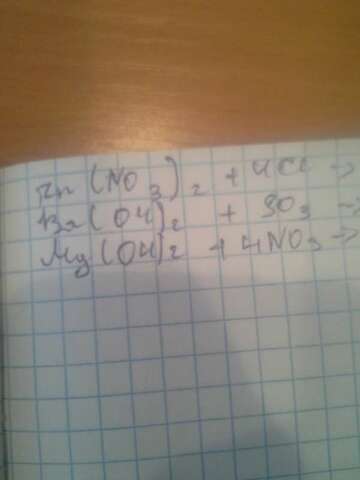 Zn(NO₃)₂ + HCl →
Ba(OH)₂ + SO₃ →
Mg(OH)₂ + HNO₃ →